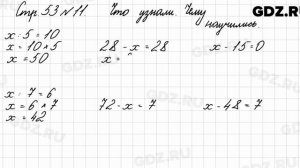 Стр. 53 № 11. Что узнали. Чему научились
x : 5 = 10
x = 10 · 5
x = 50
28 - x = 28
x =
x - 15 = 0
x : 7 = 6
x = 6 · 7
x = 42
72 - x = 7
x - 48 = 7
GDZ.RU
GDZ.RU